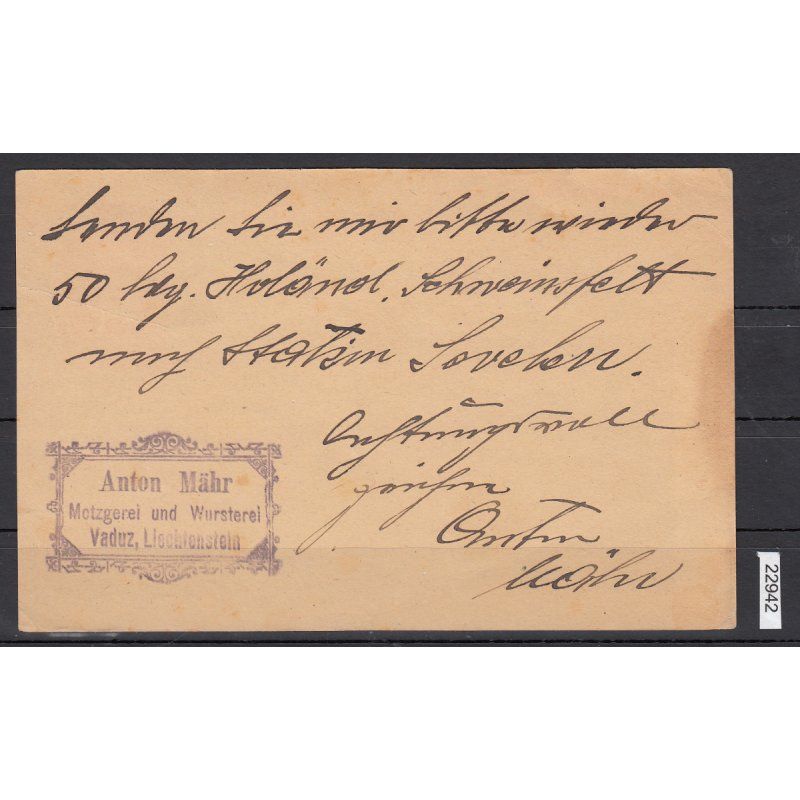 Senden Sie mir bitte wieder
50 klg. Holänd. Schweinsfett
nach Station Sevelen.
Achtungsvoll
zeichne
Anton
Mähr
Anton Mähr
Metzgerei und Wursterei
Vaduz, Liechtenstein
22942